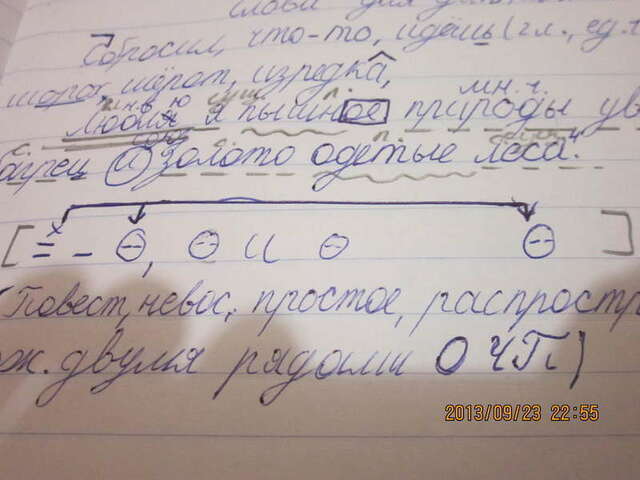 слова для
Сбросим, что-то, идёшь (гл., ед.ч
шорох, шёпот, изредка,
мн.ч.
Люблю я пышное природы ув
багрец и золото одетые леса."
[= – ⊖, ⊖ и ⊖ ⊖]
(Повест, невос., простое, распростр
ж. двумя рядами ОЧП)
2013/09/23 22:55